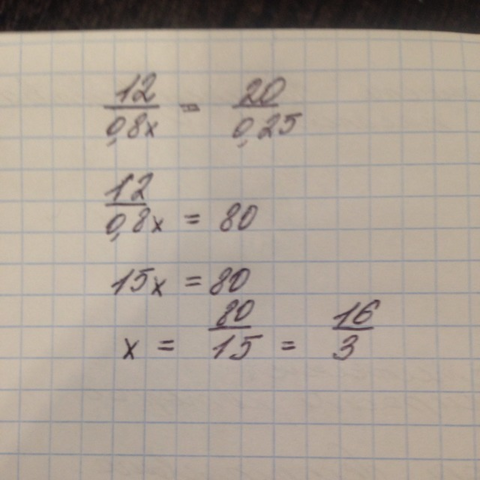 12/0,8x = 20/0,25
12/0,8x = 80
15x = 80
x = 80/15 = 16/3